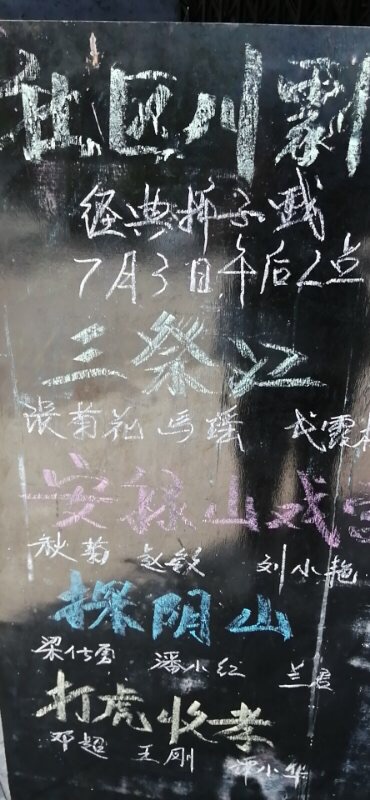 社区川剧
经典折子戏
7月3日午后2点
三祭江
张菊花 马瑶 戈霞
安禄山戏宫
秋菊 赵毅 刘小艳
探阴山
梁仕勇 潘小红 兰君
打虎收孝
邓超 王刚 谭小华